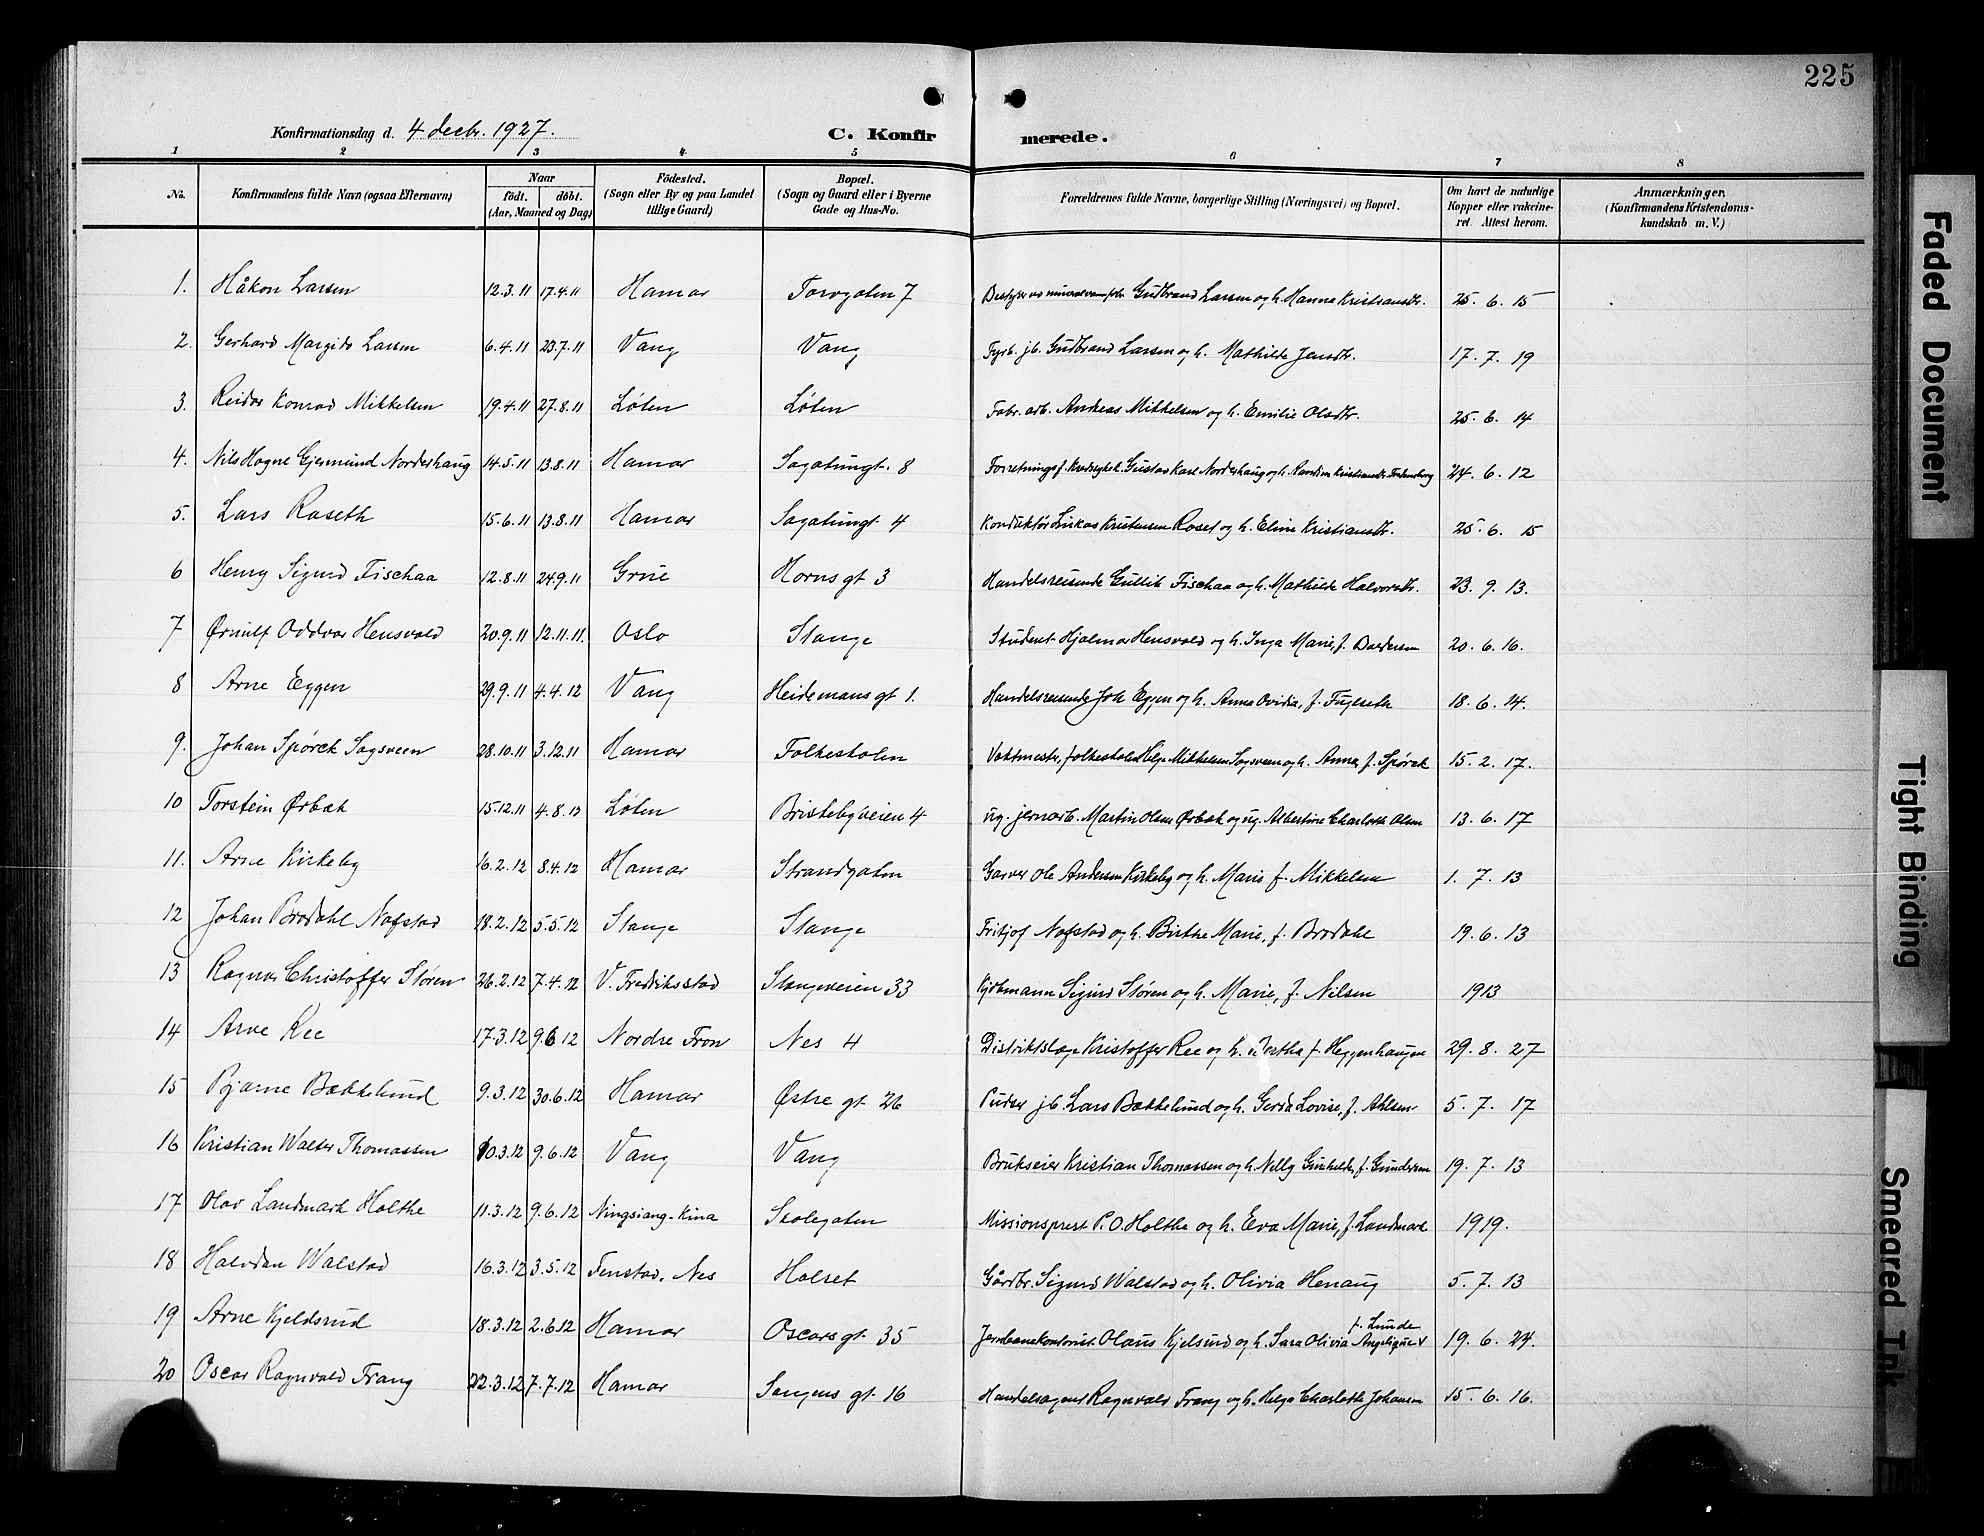 225
Konfirmationsdag d. 4 decbr. 1927.
C. Konfirmerede.
1 2 3 4 5 6 7 8
No. Konfirmandens fulde Navn (ogsaa Efternavn) Naar født. døbt. (Aar, Maaned og Dag) Fødested. (Sogn eller By og paa Landet tillige Gaard) Bopæl. (Sogn og Gaard eller i Byerne Gade og Hus-No. Forældrenes fulde Navne, borgerlige Stilling (Næringsvei) og Bopæl. Om havt de naturlige Kopper eller vakcineret. Attest herom. Anmærkninger. (Konfirmandens Kristendomskundskab m. V.)
1. Håkon Larsen 12.3.11 17.4.11 Hamar Torvgaten 7 Gudbrand Larsen og h. Hanna Kristiansdtr. 25. 6. 15
2. Gerhard Margido Larsen 6.4.11 23.7.11 Vang Vang Fyrb. jb. Gudbrand Larsen og h. Mathilde Jensdtr. 17. 7. 19
3. Reidar Konrad Mikkelsen 19.4.11 27.8.11 Løten Løten Fabr. arb. Andreas Mikkelsen og h. Emilie Olsdtr. 25. 6. 14
4. Nils Hogne Gjermund Norderhaug 14.5.11 13.8.11 Hamar Sagatungt. 8 Forretningsf. Gustav Karl Norderhaug og h. 24. 6. 12
5. Lars Roseth 15.6.11 13.8.11 Hamar Sagatungt 4 Konduktør Lukas Kristensen Roset og h. Eline Kristiansdtr. 25. 6. 15
6 Henry Sigurd Fischaa 12.8.11 24.9.11 Grue Horns gt 3 Handelsreisende Gullik Fischaa og h. Mathilde Halvorsdtr. 23. 9. 13.
7 Ørnulf Oddvar Hensvold 20.9.11 12.11.11. Oslo Stange Student Hjalmar Hensvold og h. Inga Marie, f. 20. 6. 16.
8 Arne Eggen 29.9.11 4.4.12 Vang Heidemans gt 1. Handelsreisende Joh Eggen og h. Anna Ovidia, f. Fugleseth 18. 6. 14.
9. Johan Spørck Sagsveen 28.10.11 3.12.11 Hamar Folkeskolen Vaktmester, folkeskolen Helge Mikkelsen Sagsveen og h. Anna, f. Spørck 15. 2. 17.
10 Torstein Ørbæk 15.12.11 4.8.12 Løten Bristebyveien 4 ug. jernarb. Martin Olsen Ørbæk og ug. Albertine Charlotte Olsen 13. 6. 17
11. Arne Kirkeby 16.2.12 8.4.12 Hamar Strandgaten Garver Ole Andersen Kirkeby og h. Marie f. Mikkelsen 1. 7. 13
12 Johan Brodahl Nafstad 18.2.12 5.5.12 Stange Stange Fritjof Nafstad og h. Birthe Marie, f. Brodahl 19. 6. 13
13 Ragnar Christoffer Støren 26.2.12 7.4.12 V. Fredriksstad Stangeveien 33 Kjøbmann Sigurd Støren og h. Marie, f. Nilsen 1913
14 Arve Ree 17.3.12 9.6 12 Nordre Fron Nes H Distriktslæge Kristoffer Ree og h. Bertha f. Heggenhaugen 29. 8. 27
15 Bjarne Bækkelund 9.3.12 30.6.12 Hamar Østre gt 26 Pudser jb. Lars Bækkelund og h. Gerda Lovise, f. Ahlsen 5. 7. 17
16 Kristian Walter Thomassen 10.3.12 9.6.12 Vang Vang Brukseier Kristian Thomassen og h. Nelly Gunhilde, f. Gundersen 19. 7. 13
17 Olav Landmark Holthe 11.3.12 9.6.12 Ningsiang-Kina Skolegaten Missionsprest P. O. Holthe og h. Eva Marie, f. Landmark 1919.
18 Halvdan Walstad 16.3.12 3.5.12 Fenstad, Nes Holset Gårdbr. Sigurd Walstad og h. Olivia Henaug 5. 7. 13
19 Arne Kjeldsrud 18.3.12 2.6.12 Hamar Oscars gt 35 Jernbanekontorist Olaus Kjelsrud og h. Sara Olivia Angelique f. Lunde 19. 6. 24.
20 Oscar Ragnvald Frang 22.3.12 7.7.12 Hamar Sangens gt 16 Handelsagent Ragnvald Frang og h. Helga Charlotte Johansen 15. 6. 16.
Faded Document
Tight Binding
Smeared Ink